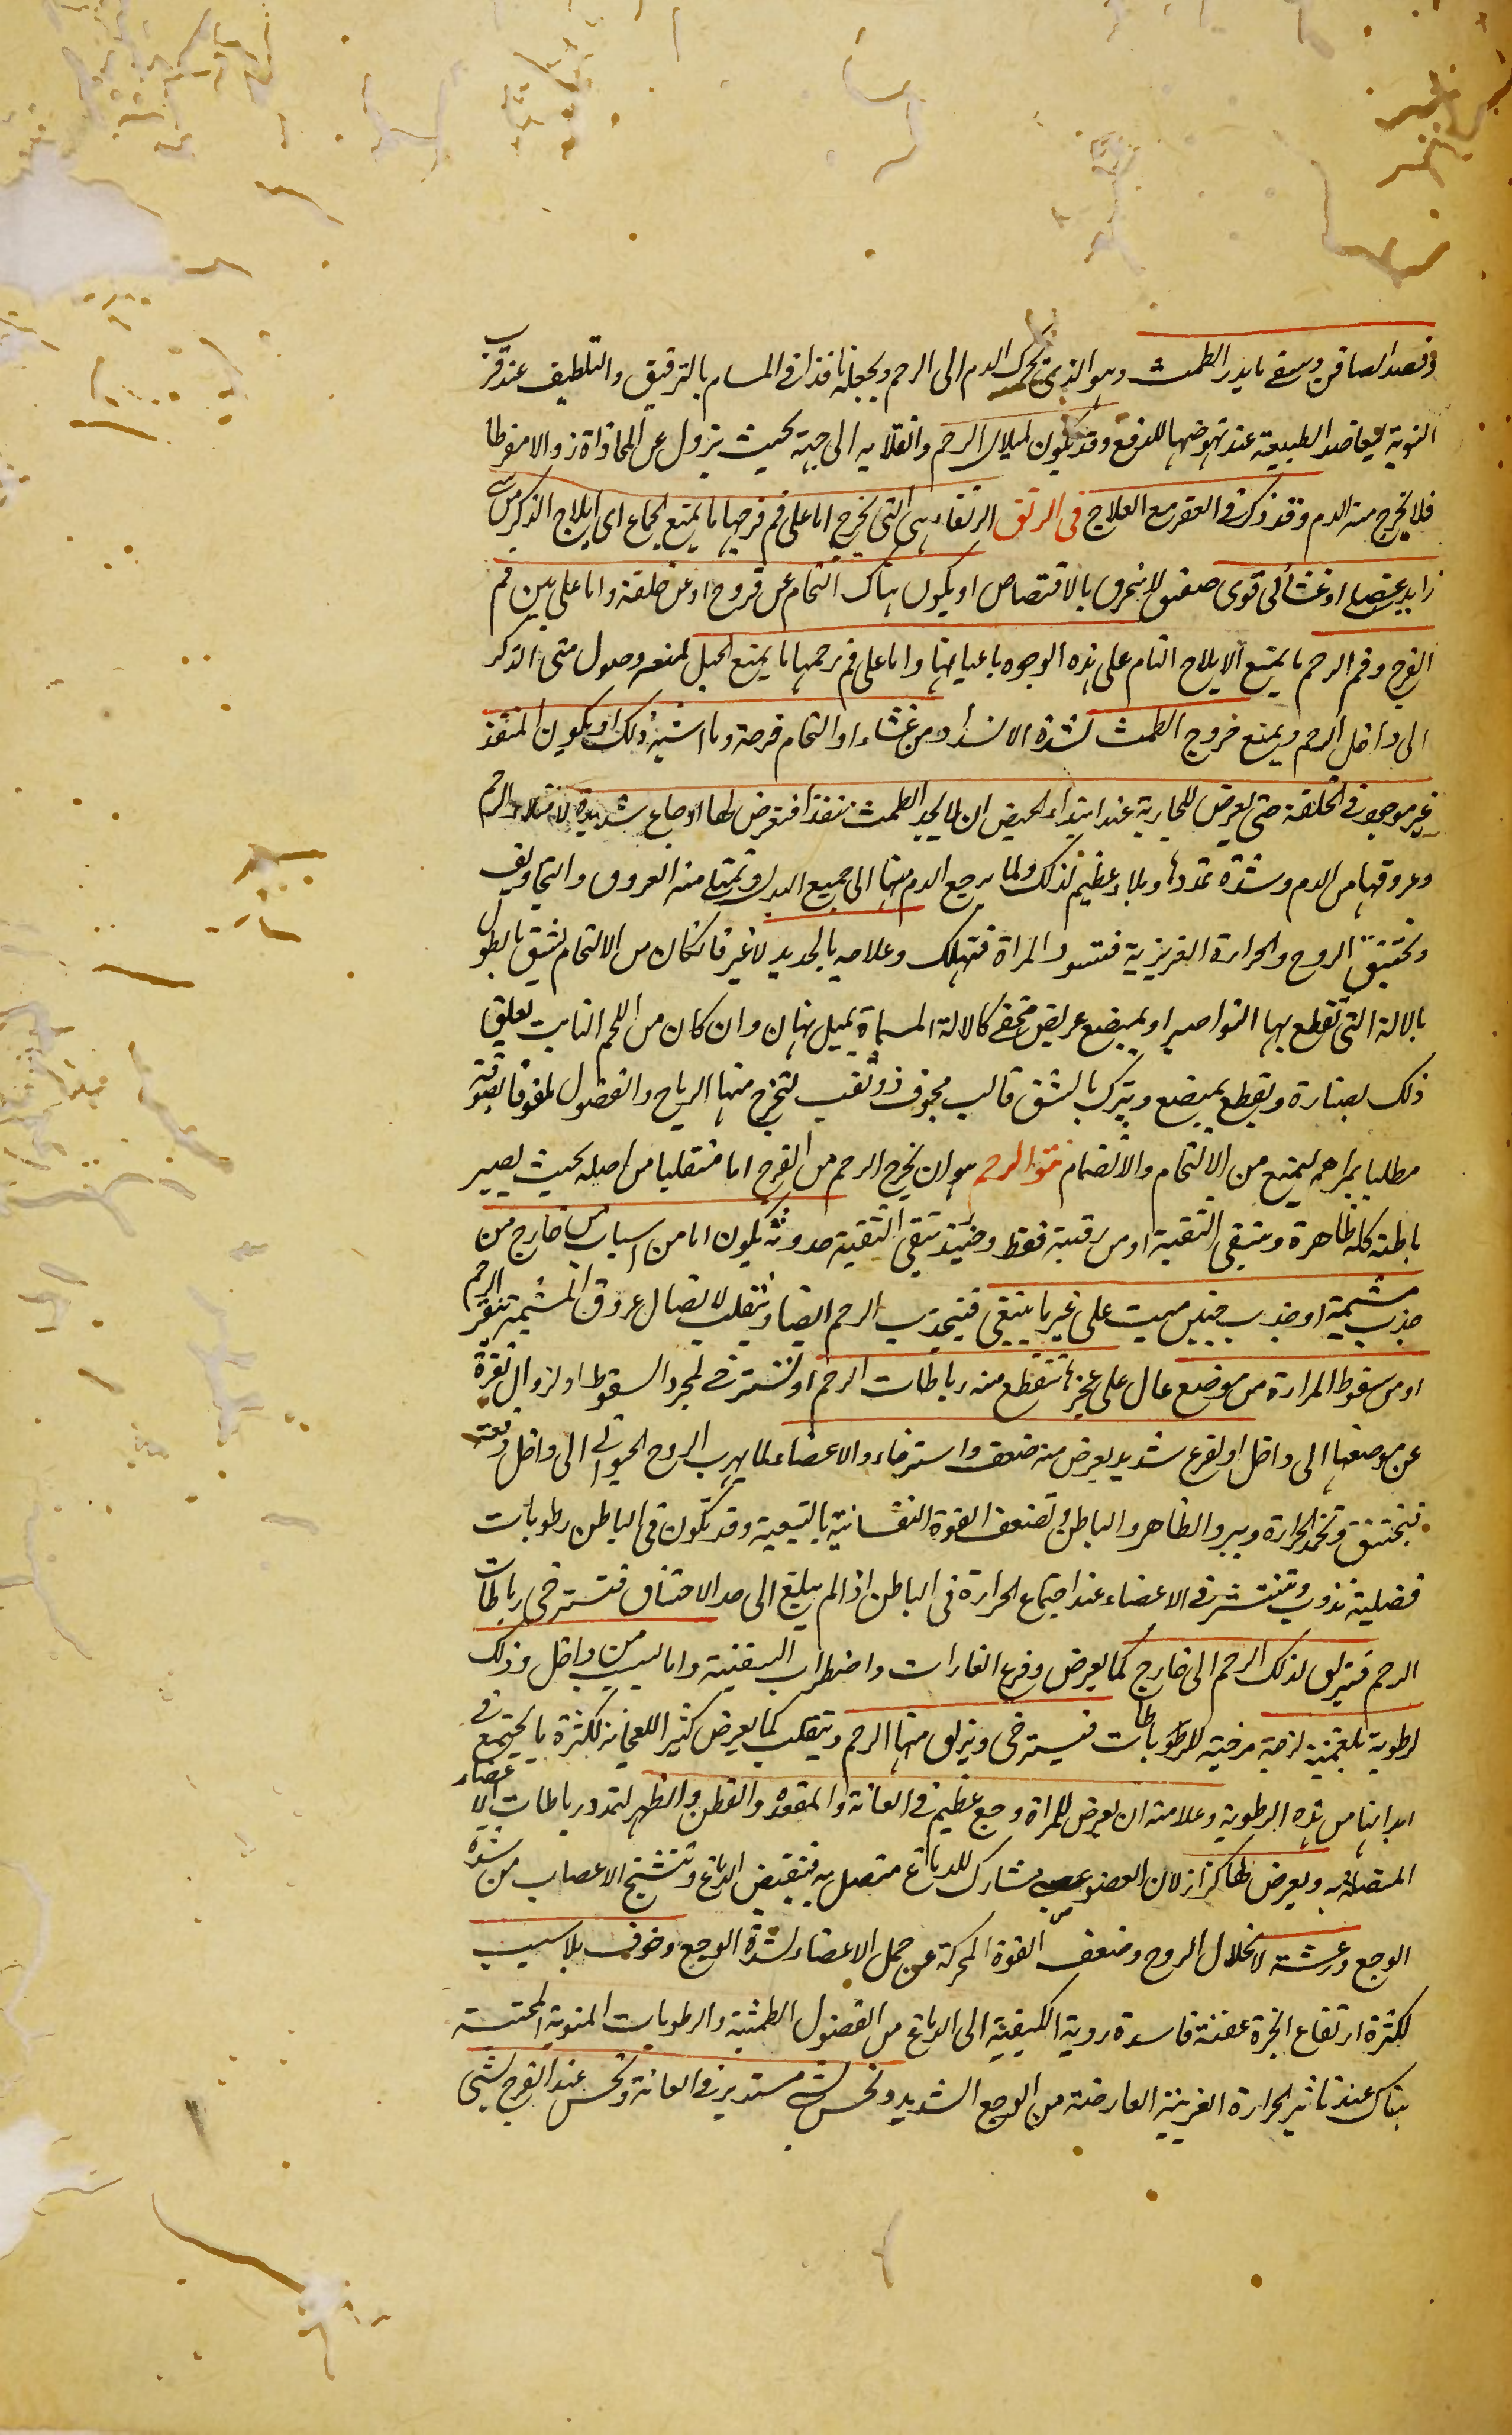 و فصد الصافن وسقى ما يدر الطمث وهو الذى يحرك الدم الى الرحم ويجعله نافذا فى المسام بالترقيق والتلطيف عند قرب
النوبة ليعاضد الطبيعة عند نهوضها للدفع وقد يكون لميلان الرحم وانقلابه الى جهة بحيث يزول عن المحاذاة
فلا يخرج منه الدم وقد ذكر فى العقر مع العلاج فى الرتق الرتقاء هى التى يخرج اما على فم فرجها ما يمنع الجماع اى ايلاج الذكر من شى
زايد عضلى او غشائى قوى صفيق لا ينخرق بالاقتضاض او يكون هناك التحام عن قروح او عن خلقة واما على بين فم
الفرج وفم الرحم ما يمنع الايلاج التام على هذه الوجوه باعيانها واما على فم رحمها ما يمنع الحبل لمنعه وصول منى الذكر
الى داخل الرحم ويمنع خروج الطمث لشدة الانسداد من غشاء او التحام قرحة وما اشبه ذلك او يكون المنفذ
غير موجود فى الخلقة حتى يعرض للجارية عند ابتداء الحيض ان لا يجد الطمث منفذا فتعرض لها اوجاع شديدة لامتلاء الرحم
وعروقها من الدم وشدة تمددها وبلاء عظيم لذلك ولما يرجع الدم منها الى جميع البدن وتمتلى منه العروق والتجاويف
وتختنق الروح والحرارة الغريزية فتسود المراة فتهلك وعلاجه بالحديد لا غير فان كان من الالتحام يشق بالطول
بالالة التى تقطع بها النواصير او بمبضع عريض مخفى كالالة المسماة بميل نهان وان كان من اللحم النابت يعلق
ذلك بصنارة ويقطع بمبضع ويترك بالشق قالب مجوف ذو ثقب لتخرج منها الرياح والفضول ملفوفا بصوفة
مطليا بمراهم ليمنع من الالتحام والانضمام نتو الرحم هو ان يخرج الرحم من الفرج اما منقلبا من اصله بحيث يصير
باطنه كله ظاهرة وتبقى الثقبة او من رقبته فقط وحينئذ تبقى الثقبة حدوثه يكون اما من اسباب من خارج من
جذب مشيمة او جذب جنين ميت على غير ما ينبغى فينجذب الرحم ايضا وتنقلب لاتصال عروق المشيمة بنقر الرحم
او من سقوط المراة من موضع عال على عجزها تنقطع منه رباطات الرحم او تسترخى لمجرد السقوط او لزوال فقرة
عن موضعها الى داخل او لفزع شديد يعرض منه ضعف واسترخاء والاعضاء لما يهرب الروح الحيوانى الى داخل دفعة
فتختنق وتخمد الحرارة ويبرد الظاهر والباطن وتضعف القوة النفسانية بالتبعية وقد تكون فى الباطن رطوبات
فضلية تذوب وتنتشر فى الاعضاء عند اجتماع الحرارة فى الباطن اذا لم يبلغ الى حد الاختناق فتسترخى رباطات
الرحم فيزلق لذلك الرحم الى خارج كما يعرض وفزع الغارات واضطراب السفينة واما لسبب من داخل وذلك
لرطوبة بلغمية لزجة مرخية للرباطات فيسترخى ويزلق منها الرحم وينقلب كما يعرض كثيرا للعجائز لكثرة ما يجتمع فى
ابدانها من هذه الرطوبة وعلامته ان يعرض للمراة وجع عظيم فى العانة والمقعدة والقطن والظهر لتمدد رباطات الاعضاء
المتصلة به ويعرض لها كزاز لان العضو عصبى مشارك للدماغ متصل به فينقبض الدماغ وتتشنج الاعصاب من شدة
الوجع ورعشة لانحلال الروح وضعف القوة المحركة عن حمل الاعضاء لشدة الوجع وخوف بلا سبب
لكثرة ارتفاع ابخرة عفنة فاسدة ردية الكيفية الى الدماغ من الفضول الطمثية والرطوبات المنوية المحتبسة
هناك عند تاثير الحرارة الغريبة العارضة من الوجع الشديد وتحس بشى مستدير فى العانة وتحس عند الفرج بشى